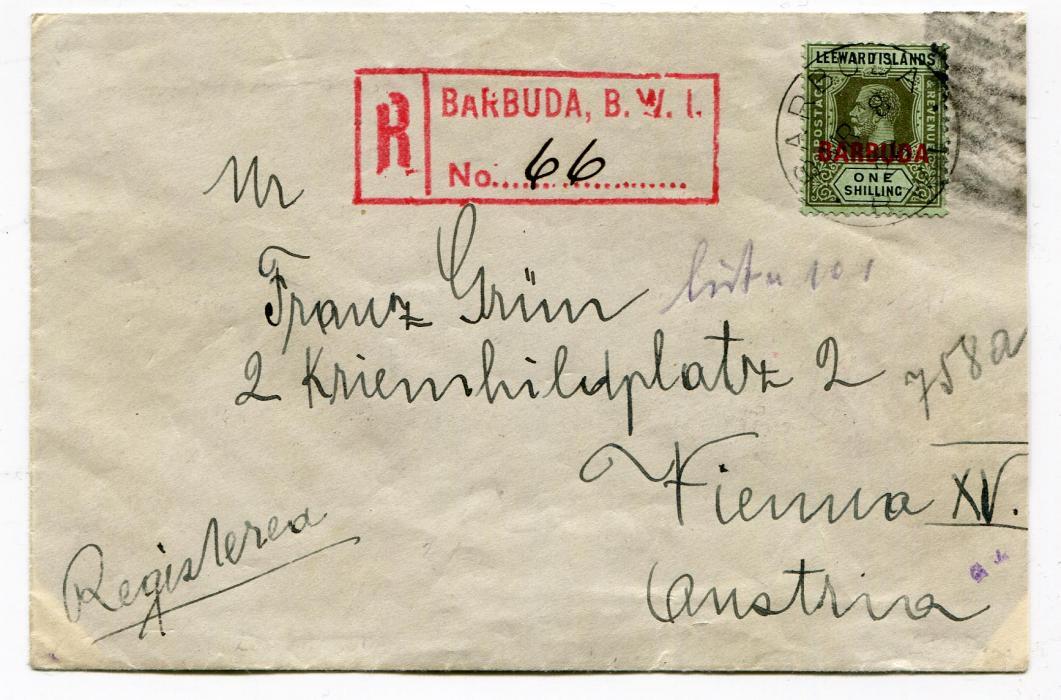 BARBUDA, B. W. I.
R
No. 66
LEEWARD ISLANDS
POSTAGE & REVENUE
BARBUDA
ONE
SHILLING
BARBUDA
Mr
Franz Grün
2 Kriemhildplatz 2
758a
Vienna XV.
Austria
Registered